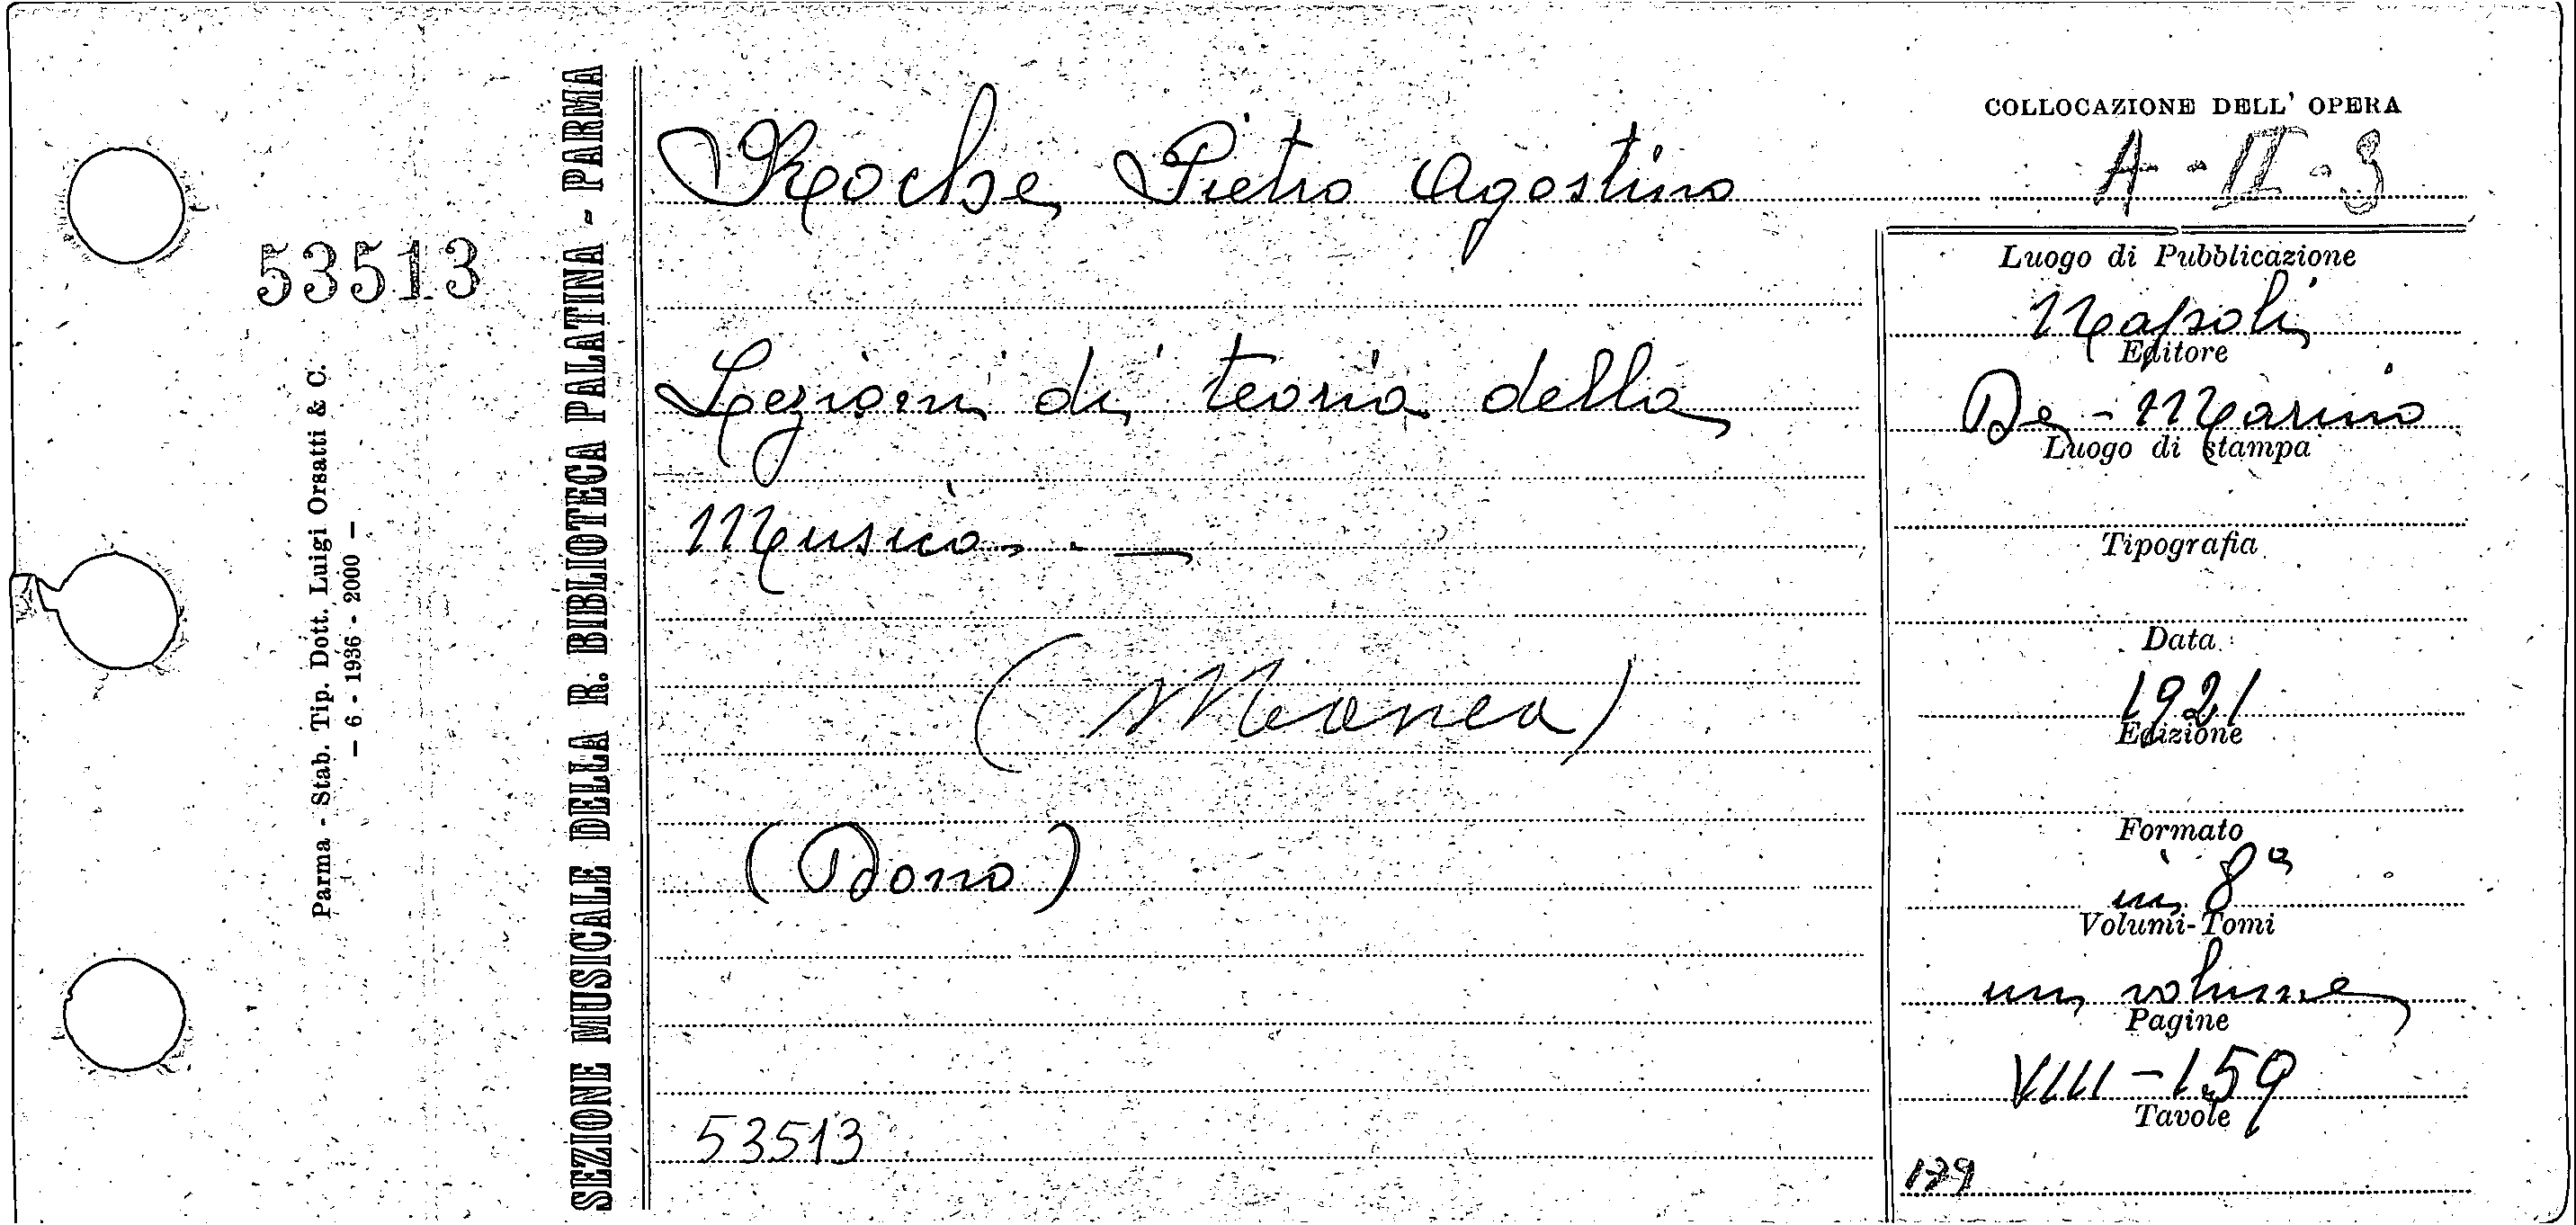 53513
Parma - Stab. Tip. Dott. Luigi Orsatti & C.
— 6 - 1936 - 2000 —
SEZIONE MUSICALE DELLA R. BIBLIOTECA PALATINA - PARMA
Roche Pietro Agostino
Lezioni di teoria della
Musica. —
(Manca)
(Dono)
53513
COLLOCAZIONE DELL' OPERA
A - II - 3
Luogo di Pubblicazione
Napoli
Editore
De - Marino
Luogo di stampa
Tipografia
Data
1921
Edizione
Formato
in 8º
Volumi-Tomi
un volume
Pagine
VIII - 159
Tavole